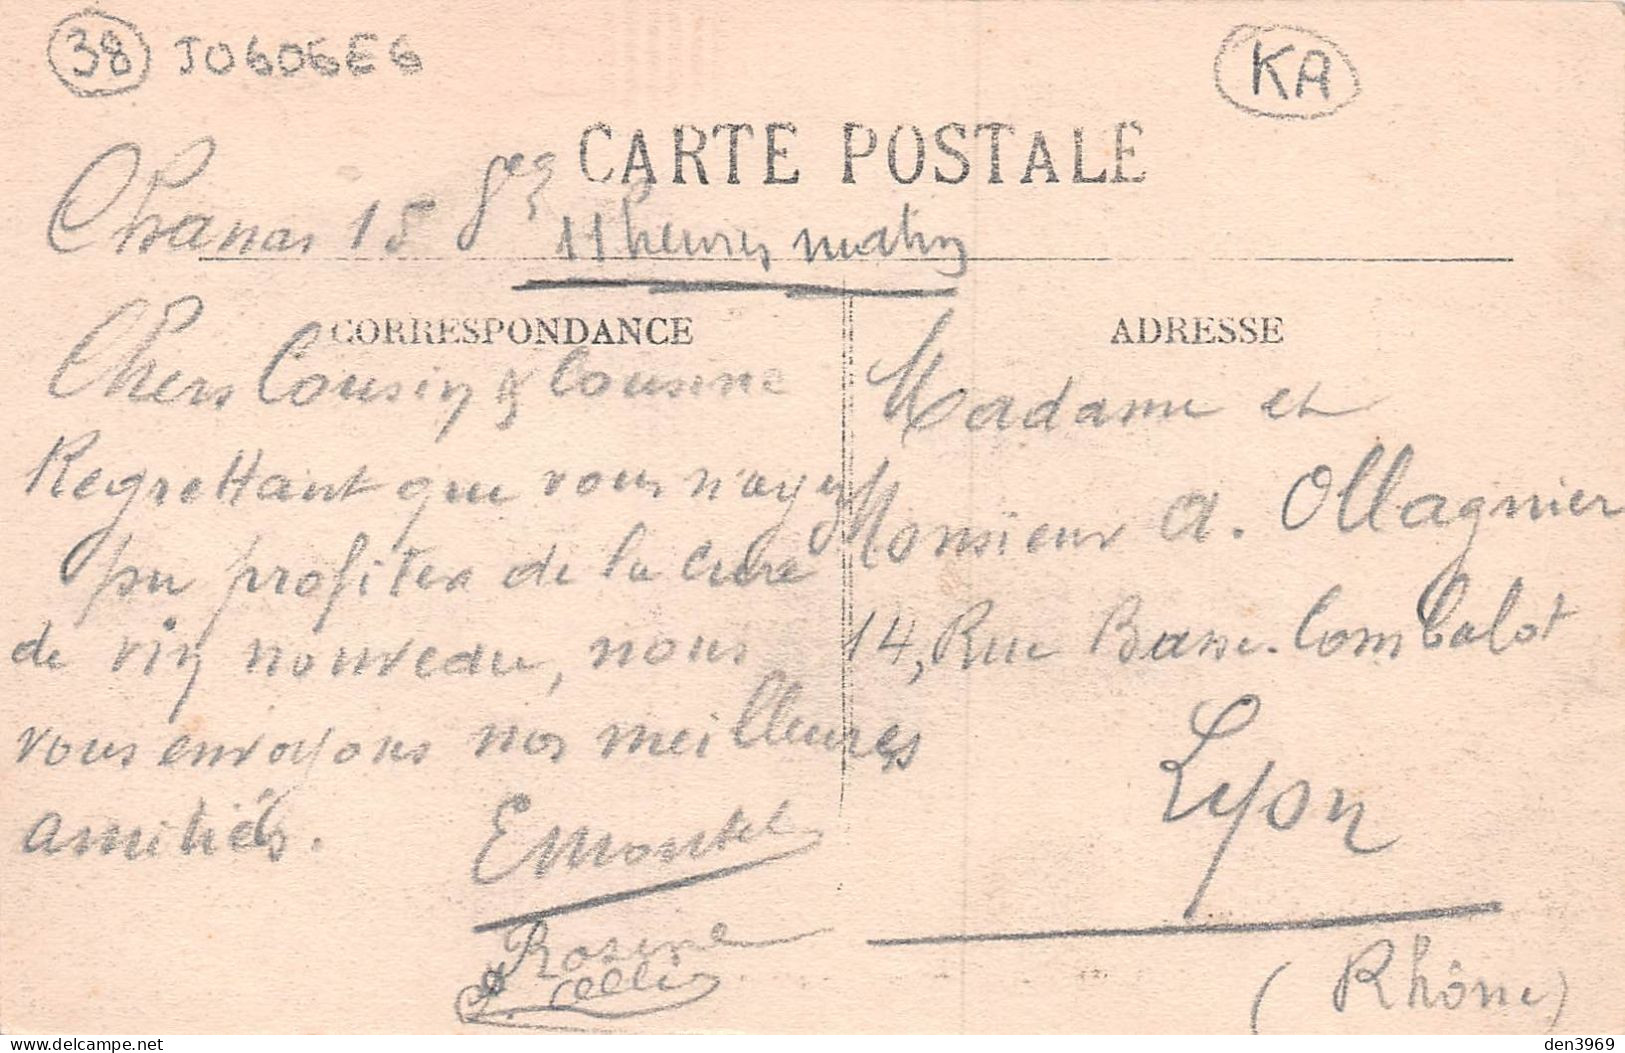 38 JOGOGEG
KA
CARTE POSTALE
Chanas 15
11 heures matin
CORRESPONDANCE
Chers Cousin & Cousine
Regrettant que vous n'ayez
pu profiter de la cure
de vin nouveau, nous
vous envoyons nos meilleures
amitiés.
E Montel
Rosine
ADRESSE
Madame et
Monsieur A. Ollagnier
14, Rue Basse-Combalot
Lyon
(Rhône)
delcampe.net
den3969